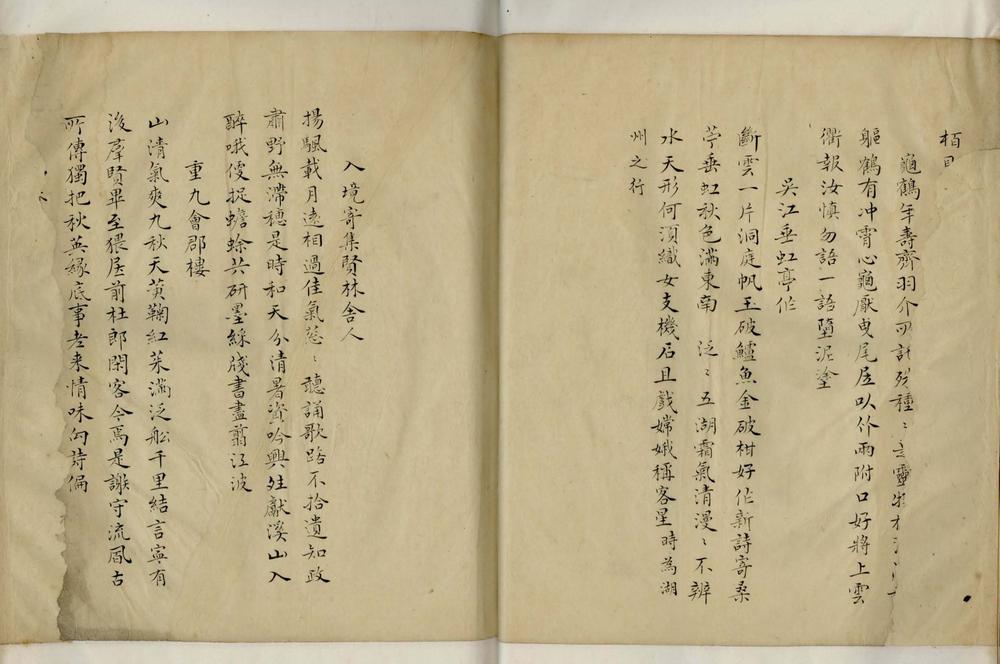 龜鶴年壽齊羽介所託殊種種是靈物相
軀鶴有冲霄心龜厭曳尾居以竹兩附口好將上雲
衢報汝慎勿語一語墮泥塗
吳江垂虹亭作
斷雲一片洞庭帆玉破鱸魚金破柑好作新詩寄桑
苧垂虹秋色滿東南 泛〻五湖霜氣清漫〻不辨
水天形何須織女支機石且戲嫦娥稱客星時為湖
州之行
入境寄集賢林舍人
揚颿載月遠相過佳氣葱〻聽誦歌路不拾遺知政
肅野無滯穗是時和天分清暑資吟興殊獻溪山入
醉哦便捉蟾蜍共研墨綵牋書盡翦江波
重九會郡樓
山清氣爽九秋天黃鞠紅茱滿泛船千里結言寧有
後群賢畢至猥居前杜郎閑客今焉是謝守流風古
所傳獨把秋英緣底事老来情味向詩偏